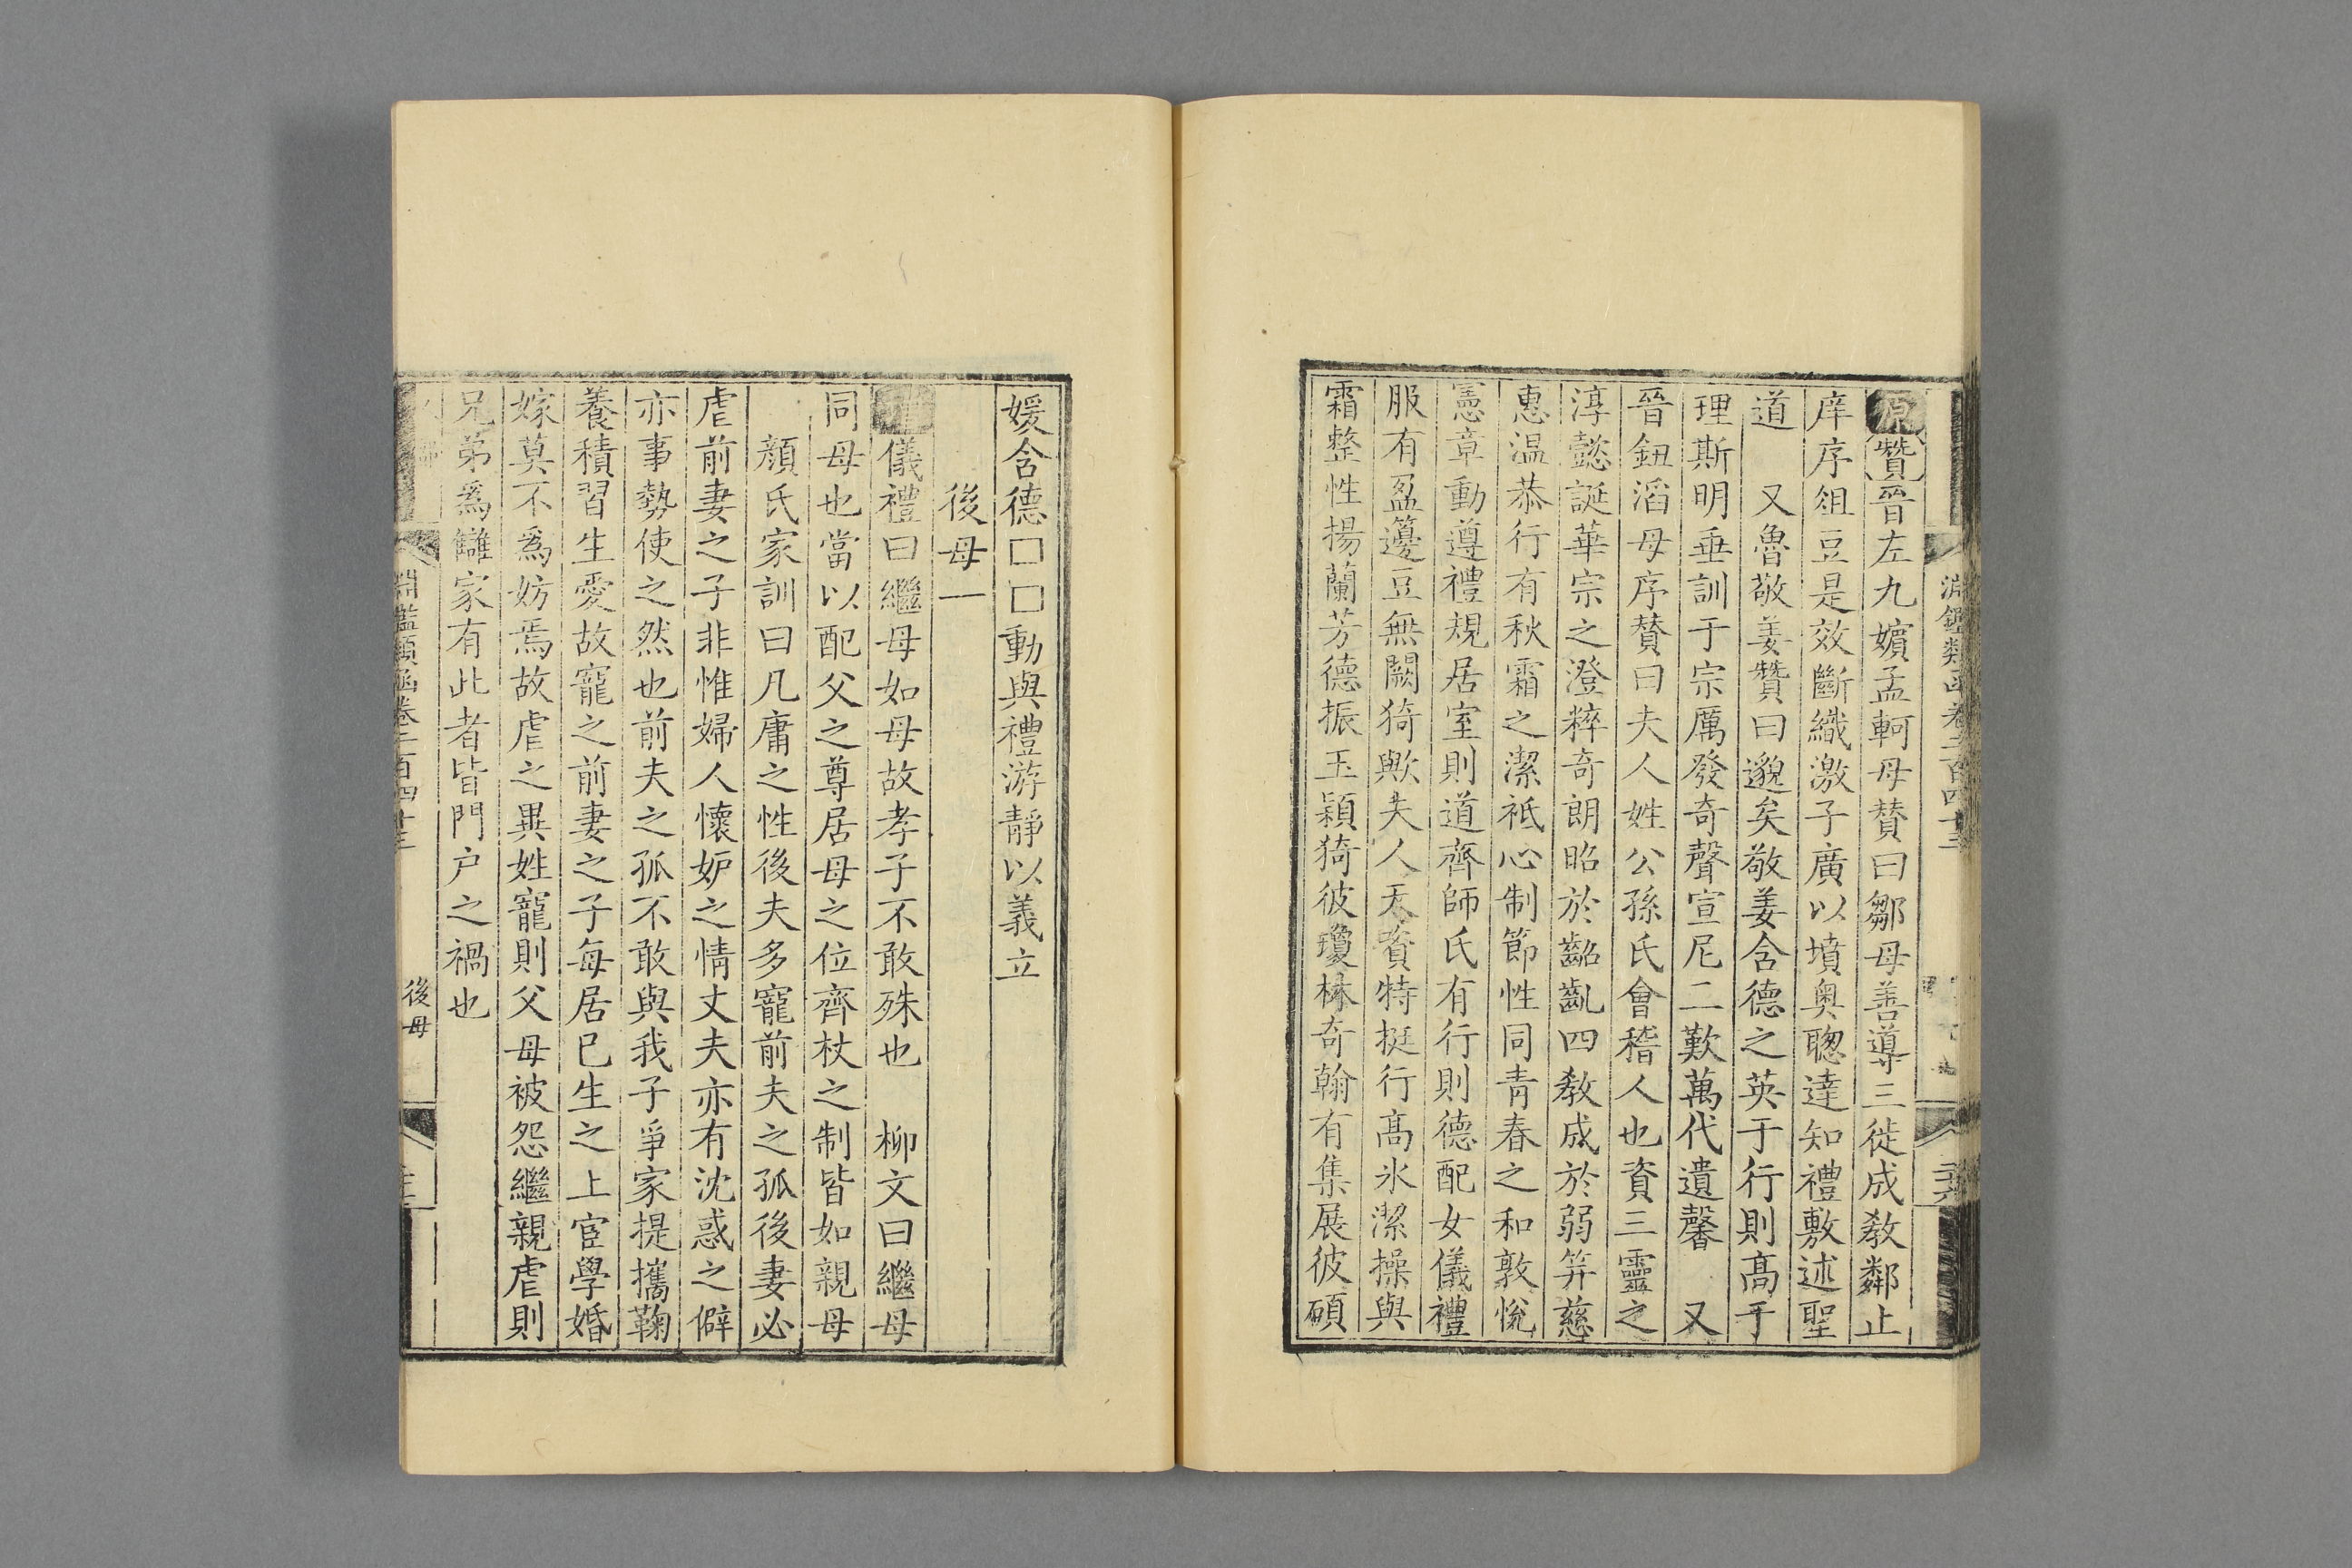 原贊晉左九嬪孟軻母贊曰鄒母善導三徙成敎鄰止
庠序俎豆是效斷織激子廣以墳奥聰達知禮敷述聖
道　又魯敬姜贊曰邈矣敬姜含德之英于行則髙于
理斯明垂訓于宗厲發奇聲宣尼二歎萬代遺馨　又
晉鈕滔母序贊曰夫人姓公孫氏會稽人也資三靈之
淳懿誕華宗之澄粹奇朗昭於齠齓四敎成於弱笄慈
惠温恭行有秋霜之潔祗心制節性同青春之和敦悅
憲章動遵禮規居室則道齊師氏有行則德配女儀禮
服有盈籩豆無闕猗歟夫人天資特挺行髙氷潔操與
霜整性揚蘭芳德振玉穎猗彼瓊林奇翰有集展彼碩
媛含德□□動與禮游靜以義立
後母一
儀禮曰繼母如母故孝子不敢殊也　柳文曰繼母
同母也當以配父之尊居母之位齊杖之制皆如親母
顏氏家訓曰凡庸之性後夫多寵前夫之孤後妻必
虐前妻之子非惟婦人懷妒之情丈夫亦有沈惑之僻
亦事勢使之然也前夫之孤不敢與我子爭家提攜鞠
養積習生愛故寵之前妻之子每居已生之上宦學婚
嫁莫不爲妨焉故虐之異姓寵則父母被怨繼親虐則
兄弟爲讎家有此者皆門户之禍也
淵鑑類函卷二百四十三
後母